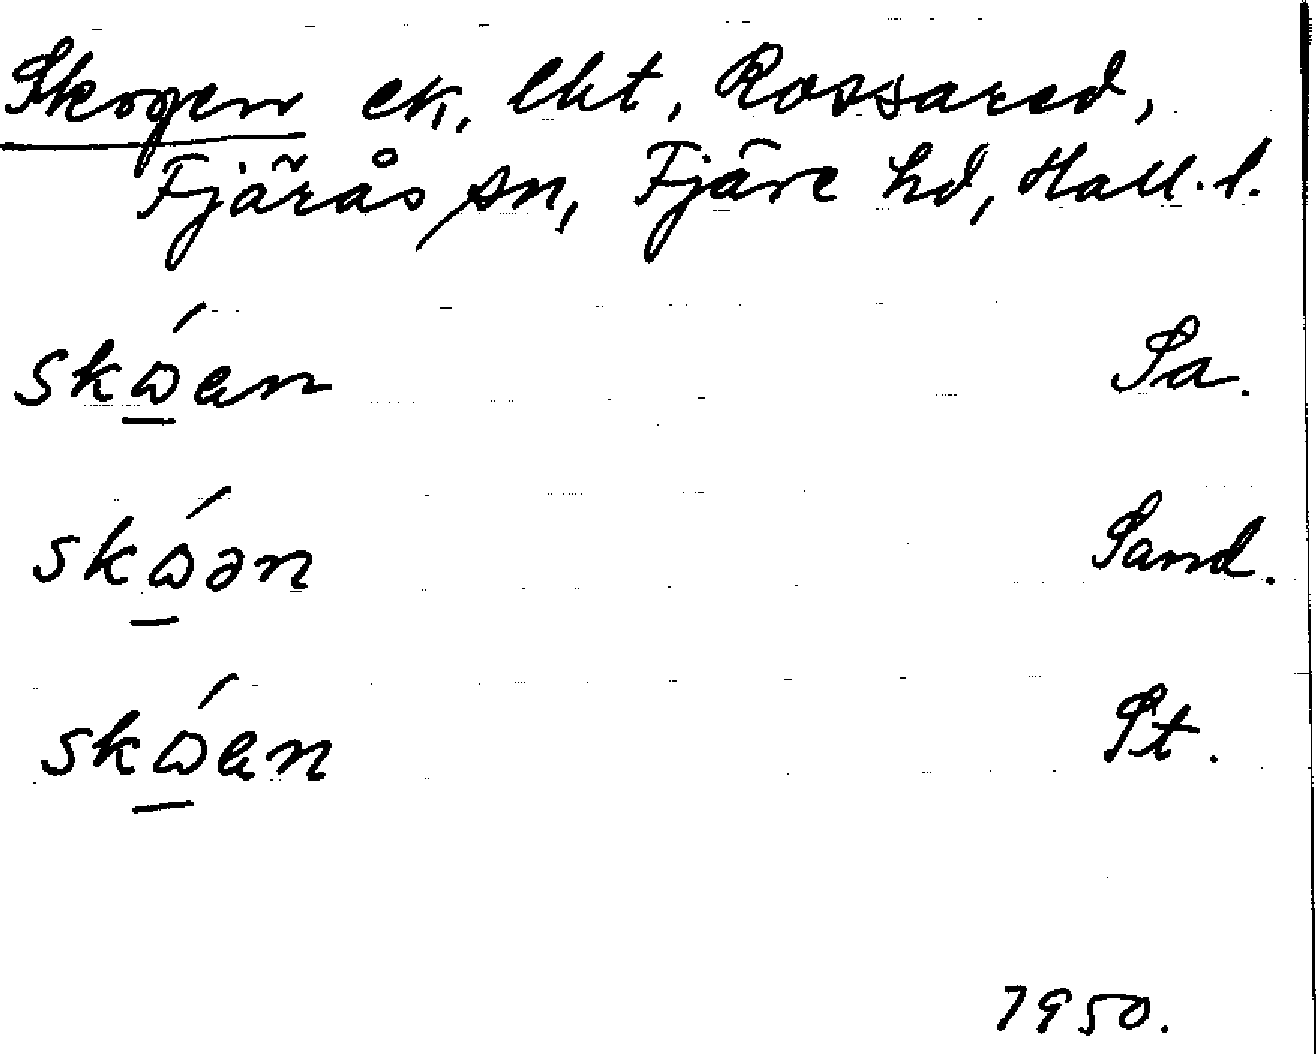 Skogen ek, lht, Rossared,
Fjärås sn, Fjäre hd, Hall. l.
skɷ̲́en Sa.
skɷ̲́ən Sand.
skɷ̲́en St.
1950.